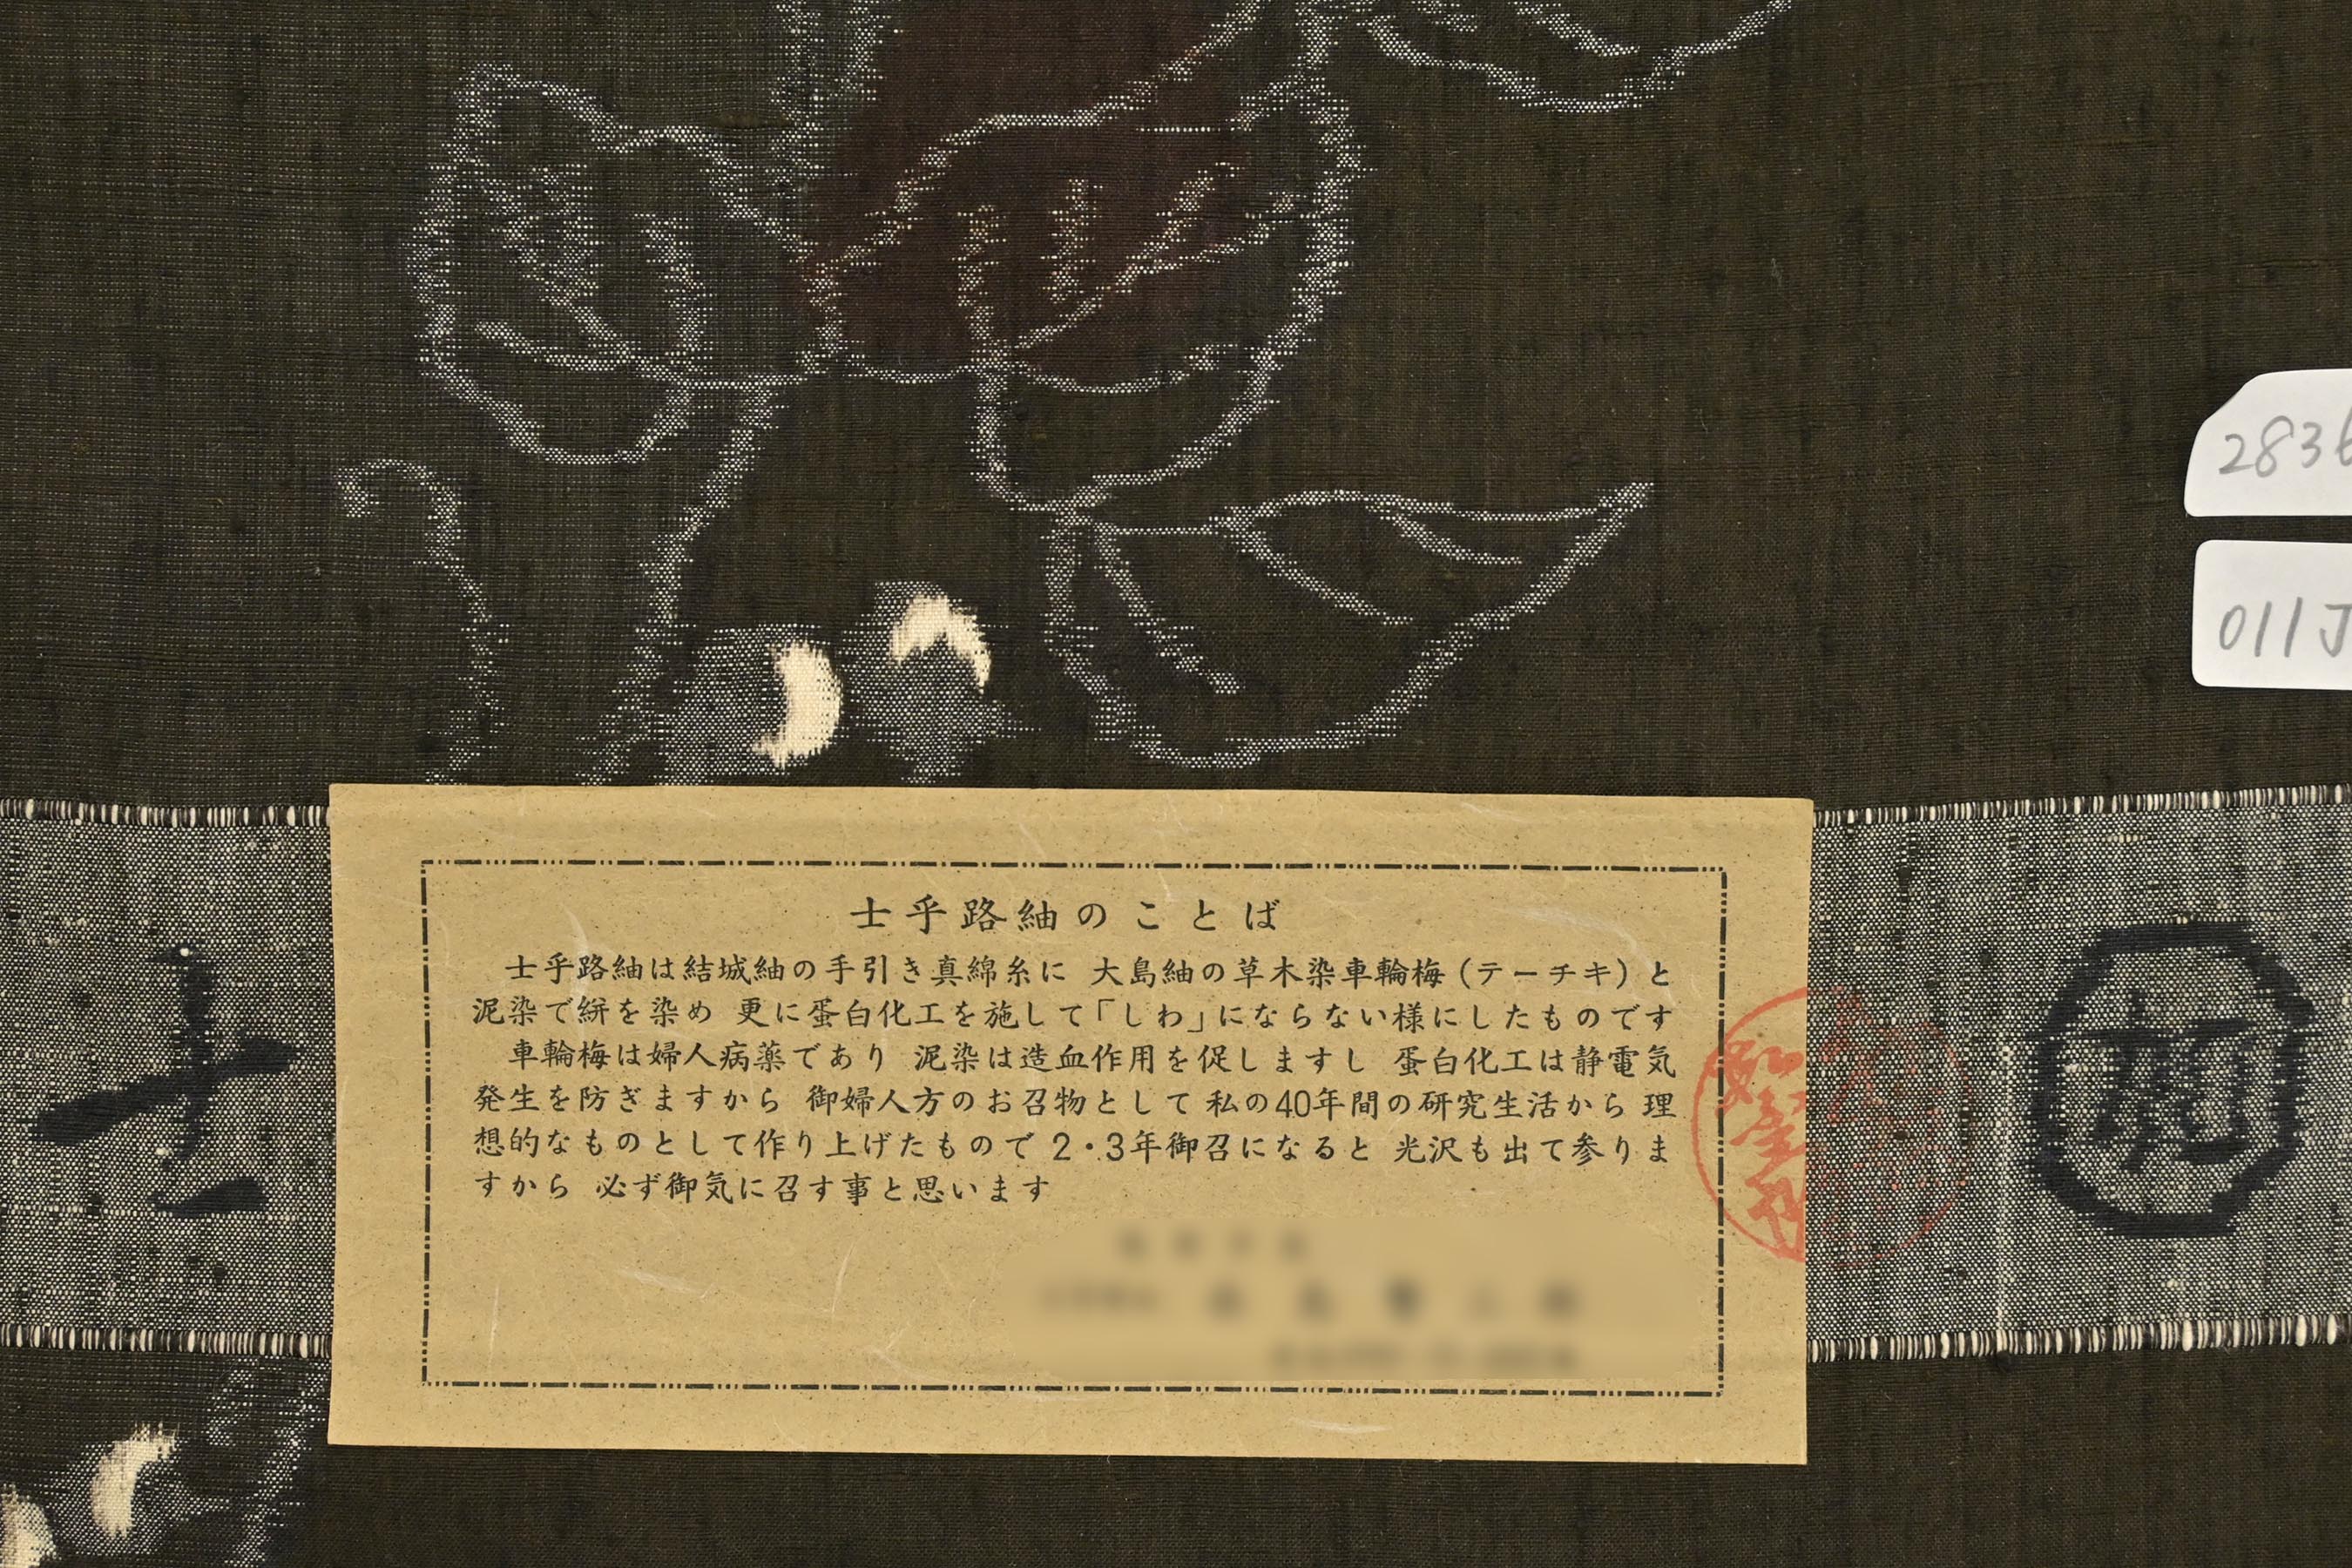 士乎路紬のことば
士乎路紬は結城紬の手引き真綿糸に 大島紬の草木染車輪梅(テーチキ)と
泥染で絣を染め 更に蛋白化工を施して「しわ」にならない様にしたものです
車輪梅は婦人病薬であり 泥染は造血作用を促しますし 蛋白化工は静電気
発生を防ぎますから 御婦人方のお召物として 私の40年間の研究生活から 理
想的なものとして作り上げたもので 2・3年御召になると 光沢も出て参りま
すから 必ず御気に召す事と思います
011J